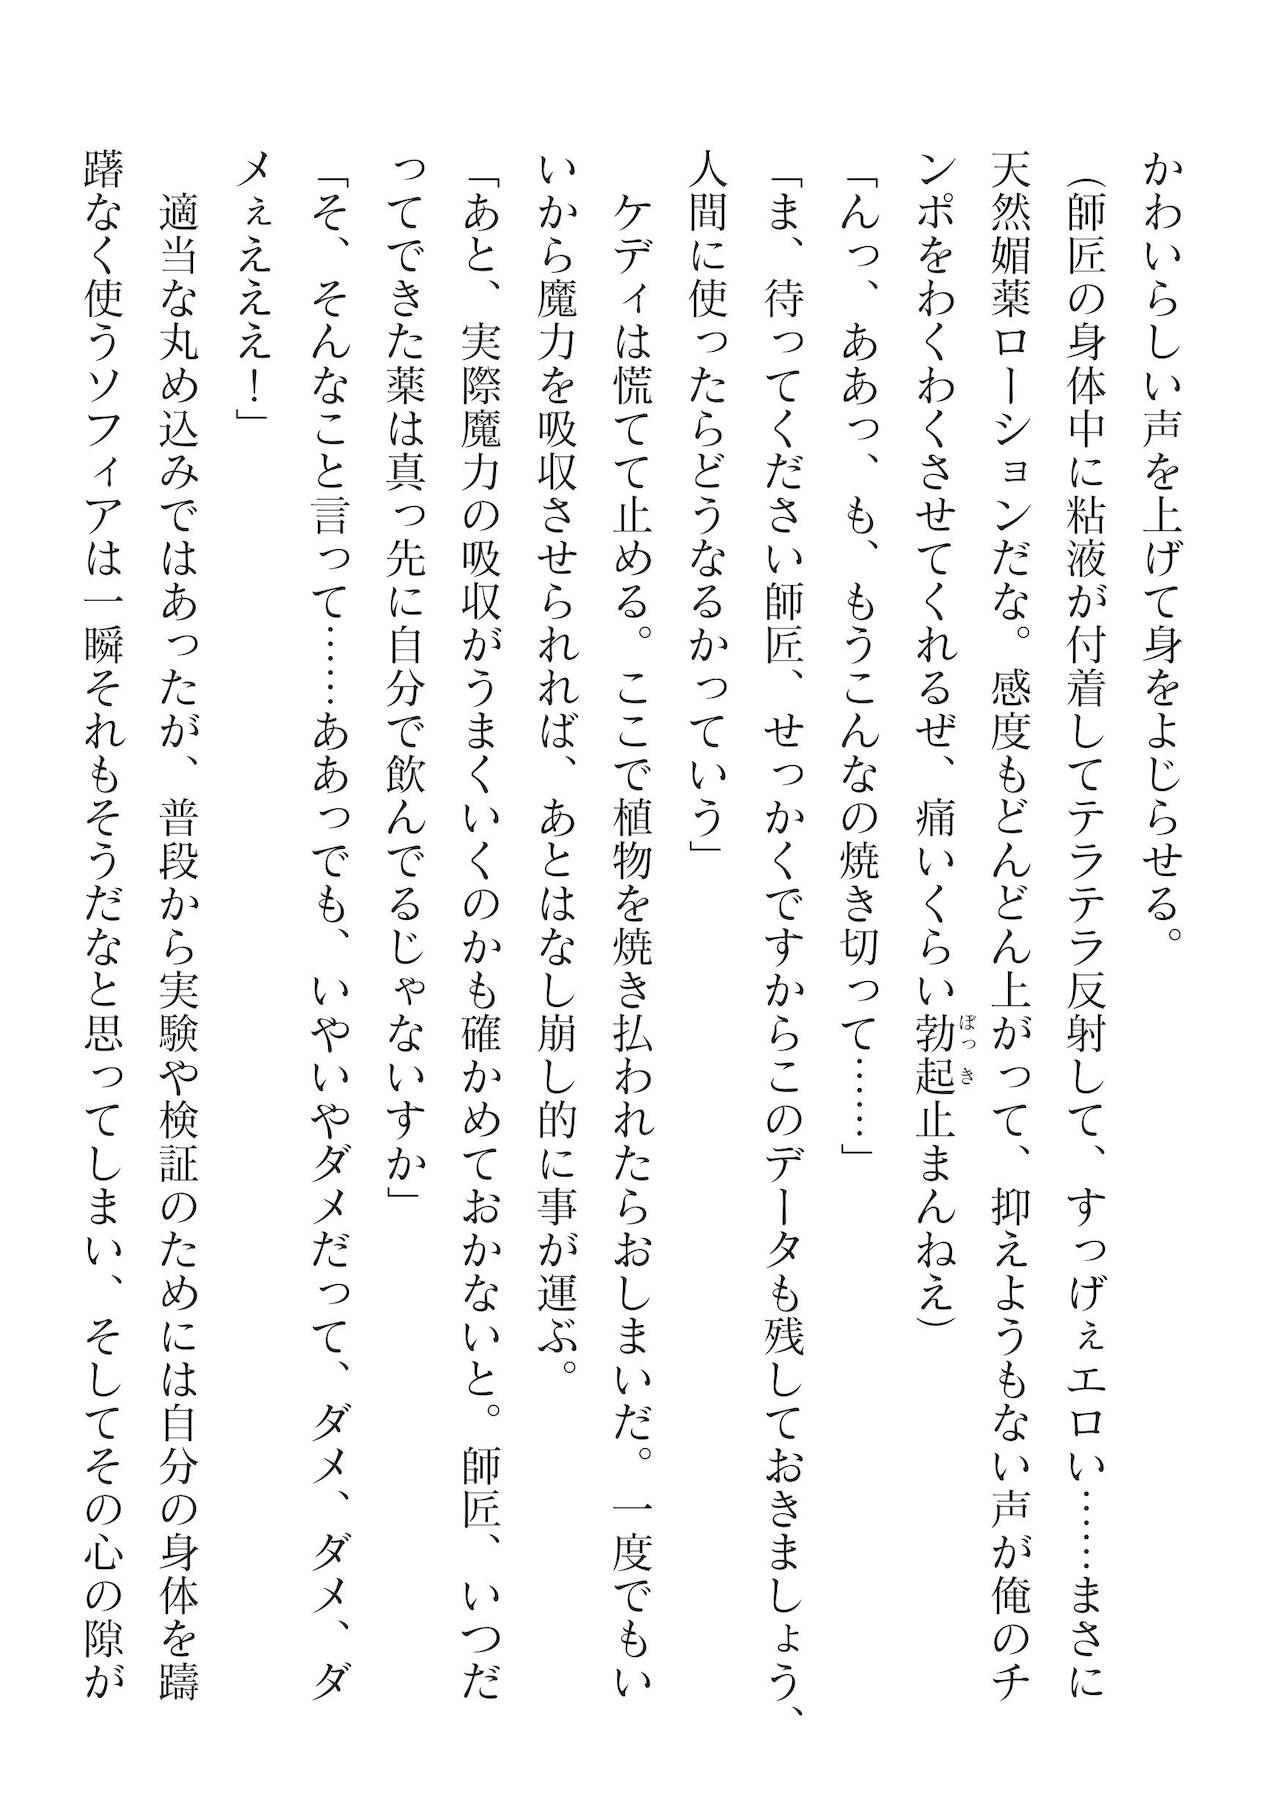 かわいらしい声を上げて身をよじらせる。
(師匠の身体中に粘液が付着してテラテラ反射して、すっげぇエロい……まさに
天然媚薬ローションだな。感度もどんどん上がって、抑えようもない声が俺のチ
ンポをわくわくさせてくれるぜ、痛いくらい勃起止まんねえ)
ぼっき
「んっ、ああっ、も、もうこんなの焼き切って……」
「ま、待ってください師匠、せっかくですからこのデータも残しておきましょう、
人間に使ったらどうなるかっていう」
ケディは慌てて止める。ここで植物を焼き払われたらおしまいだ。一度でもい
いから魔力を吸収させられれば、あとはなし崩し的に事が運ぶ。
「あと、実際魔力の吸収がうまくいくのかも確かめておかないと。師匠、いつだ
ってできた薬は真っ先に自分で飲んでるじゃないすか」
「そ、そんなこと言って……ああっでも、いやいやダメだって、ダメ、ダメ、ダ
メぇえええ！」
適当な丸め込みではあったが、普段から実験や検証のためには自分の身体を躊
躇なく使うソフィアは一瞬それもそうだなと思ってしまい、そしてその心の隙が